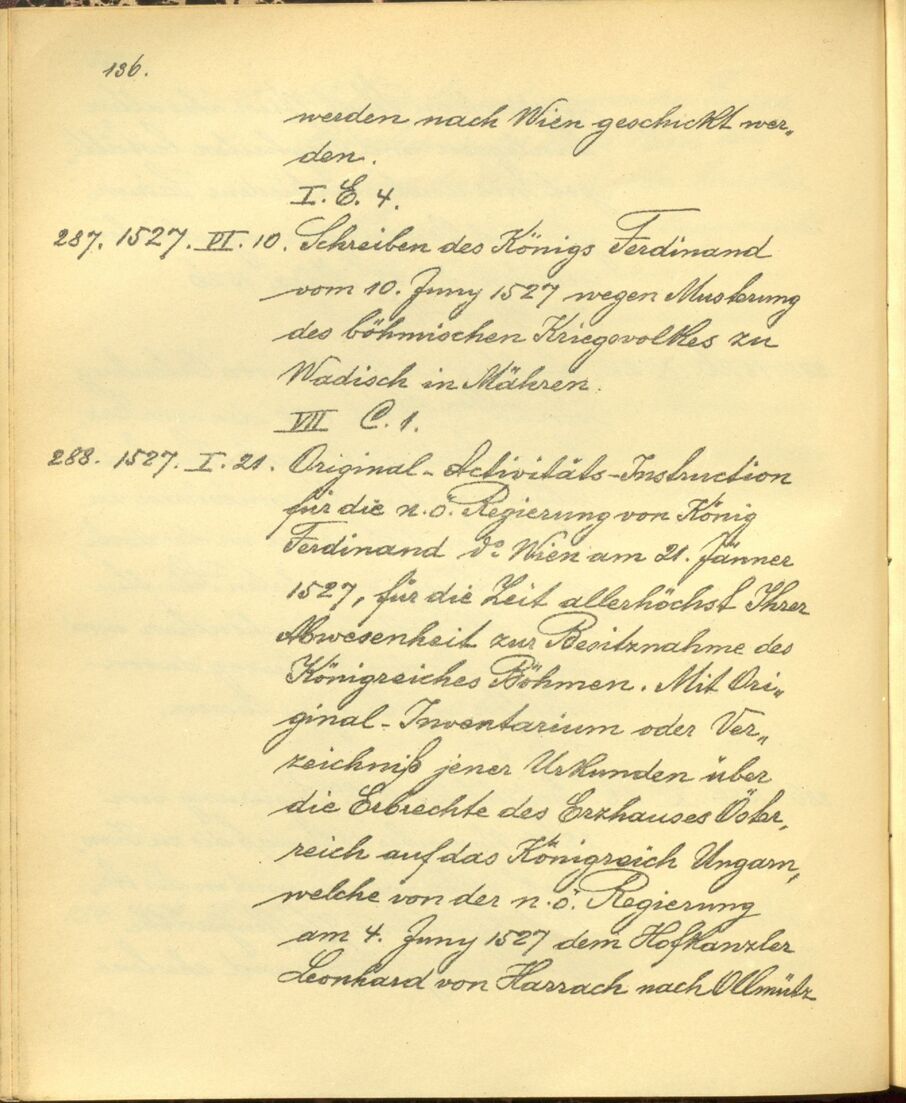 136.
werden nach Wien geschickt wer„
den.
I. E. 4.
287. 1527. VI. 10. Schreiben des Königs Ferdinand
vom 10. Juny 1527 wegen Musterung
des böhmischen Kriegsvolkes zu
Wadisch in Mähren.
VII C. 1.
288. 1527. I. 21. Original-Activitäts-Instruction
für die n.ö. Regierung von König
Ferdinand do Wien am 21. Jänner
1527, für die Zeit allerhöchst Ihrer
Abwesenheit zur Besitznahme des
Königreiches Böhmen. Mit Ori„
ginal-Inventarium oder Ver„
zeichniß jener Urkunden über
die Erbrechte des Erzhauses Öster„
reich auf das Königreich Ungarn,
welche von der n.ö. Regierung
am 4. Juny 1527 dem Hofkanzler
Leonhard von Harrach nach Ollmütz